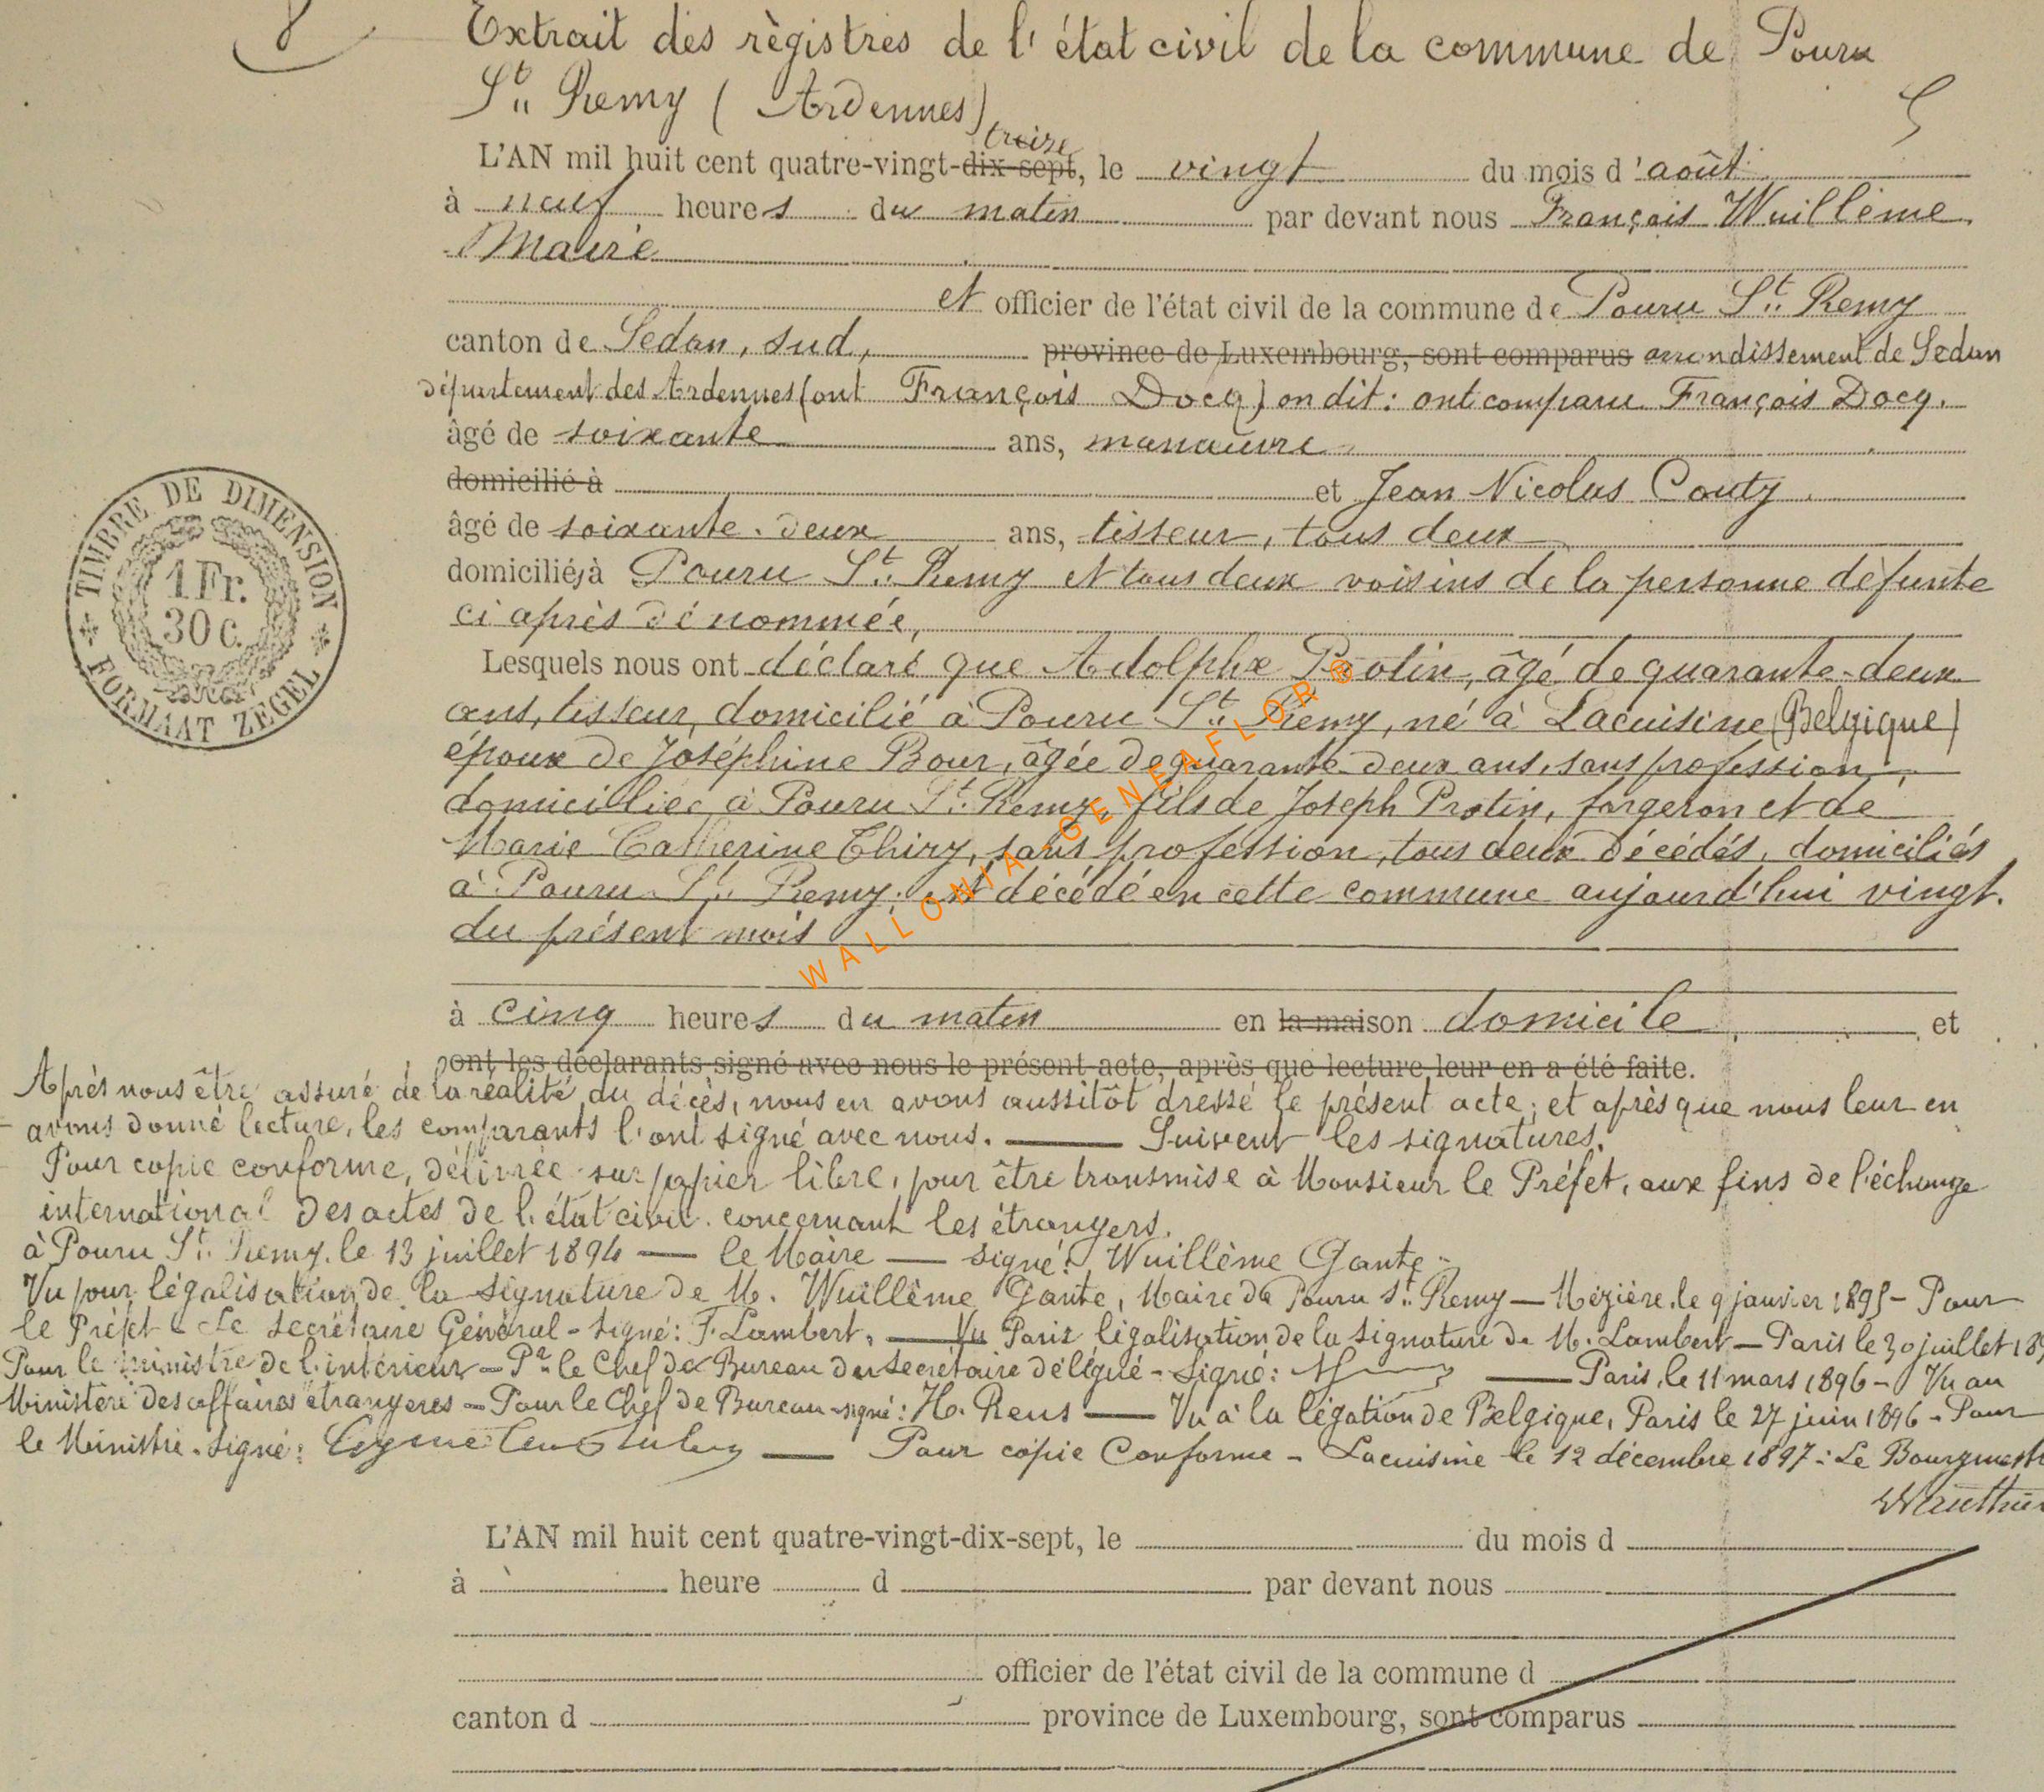 8
Extrait des règistres de l'état civil de la commune de Pouru
St. Remy (Ardennes)
treize
L'AN mil huit cent quatre-vingt-dix-sept, le vingt du mois d'août
à neuf heures du matin par devant nous François Wuillème
Maire
et officier de l'état civil de la commune de Pouru St. Remy
canton de Sedan, sud, province de Luxembourg, sont comparus arrondissement de Sedan
département des Ardennes (ont François Docq) on dit: ont comparu François Docq.
âgé de soixante ans, manœuvre
domicilié à et Jean Nicolas Couty
âgé de soixante-deux ans, tisseur, tous deux
domiciliés à Pouru St. Remy et tous deux voisins de la personne défunte
ci après dénommée,
TIMBRE DE DIMENSION
1 Fr.
30 c.
FORMAAT ZEGEL
Lesquels nous ont déclaré que Adolphe Protin, âgé de quarante-deux
ans, tisseur, domicilié à Pouru St. Remy, né à Lacuisine (Belgique)
époux de Joséphine Bour, âgée de quarante-deux ans, sans profession,
domiciliée à Pouru St. Remy, fils de Joseph Protin, forgeron et de
Marie Catherine Thiry, sans profession, tous deux décédés, domiciliés
à Pouru St. Remy, est décédé en cette commune aujourd'hui vingt.
du présent mois
WALLONIA-GENEAFLOR®
à cinq heures du matin en la maison domicile et
ont les déclarants signé avec nous le présent acte, après que lecture leur en a été faite.
Après nous être assuré de la réalité du décès, nous en avons aussitôt dressé le présent acte; et après que nous leur en
avons donné lecture, les comparants l'ont signé avec nous. — Suivent les signatures.
Pour copie conforme, délivrée sur papier libre, pour être transmise à Monsieur le Préfet, aux fins de l'échange
international des actes de l'état civil concernant les étrangers.
à Pouru St. Remy, le 13 juillet 1894 — le Maire — signé: Wuillème Gante
Vu pour légalisation de la signature de M. Wuillème Gante, Maire de Pouru St. Remy — Mézière, le 9 janvier 1895 - Pour
le Préfet - Le Secrétaire Général - signé: F. Lambert, — Vu Paris légalisation de la signature de M. Lambert — Paris le 30 juillet 189
Pour le ministre de l'intérieur - Pr. le Chef de Bureau du Secrétaire délégué - Signé: — Paris, le 11 mars 1896 - Vu au
Ministère des affaires étrangeres - Pour le Chef de Bureau - signé: H. Rens — Vu à la légation de Belgique, Paris le 27 juin 1896 - Pour
le Ministre - Signé: — Pour copie Conforme - Lacuisine le 12 décembre 1897 : Le Bourgmestr
L'AN mil huit cent quatre-vingt-dix-sept, le du mois d
à heure d par devant nous
officier de l'état civil de la commune d
canton d province de Luxembourg, sont comparus